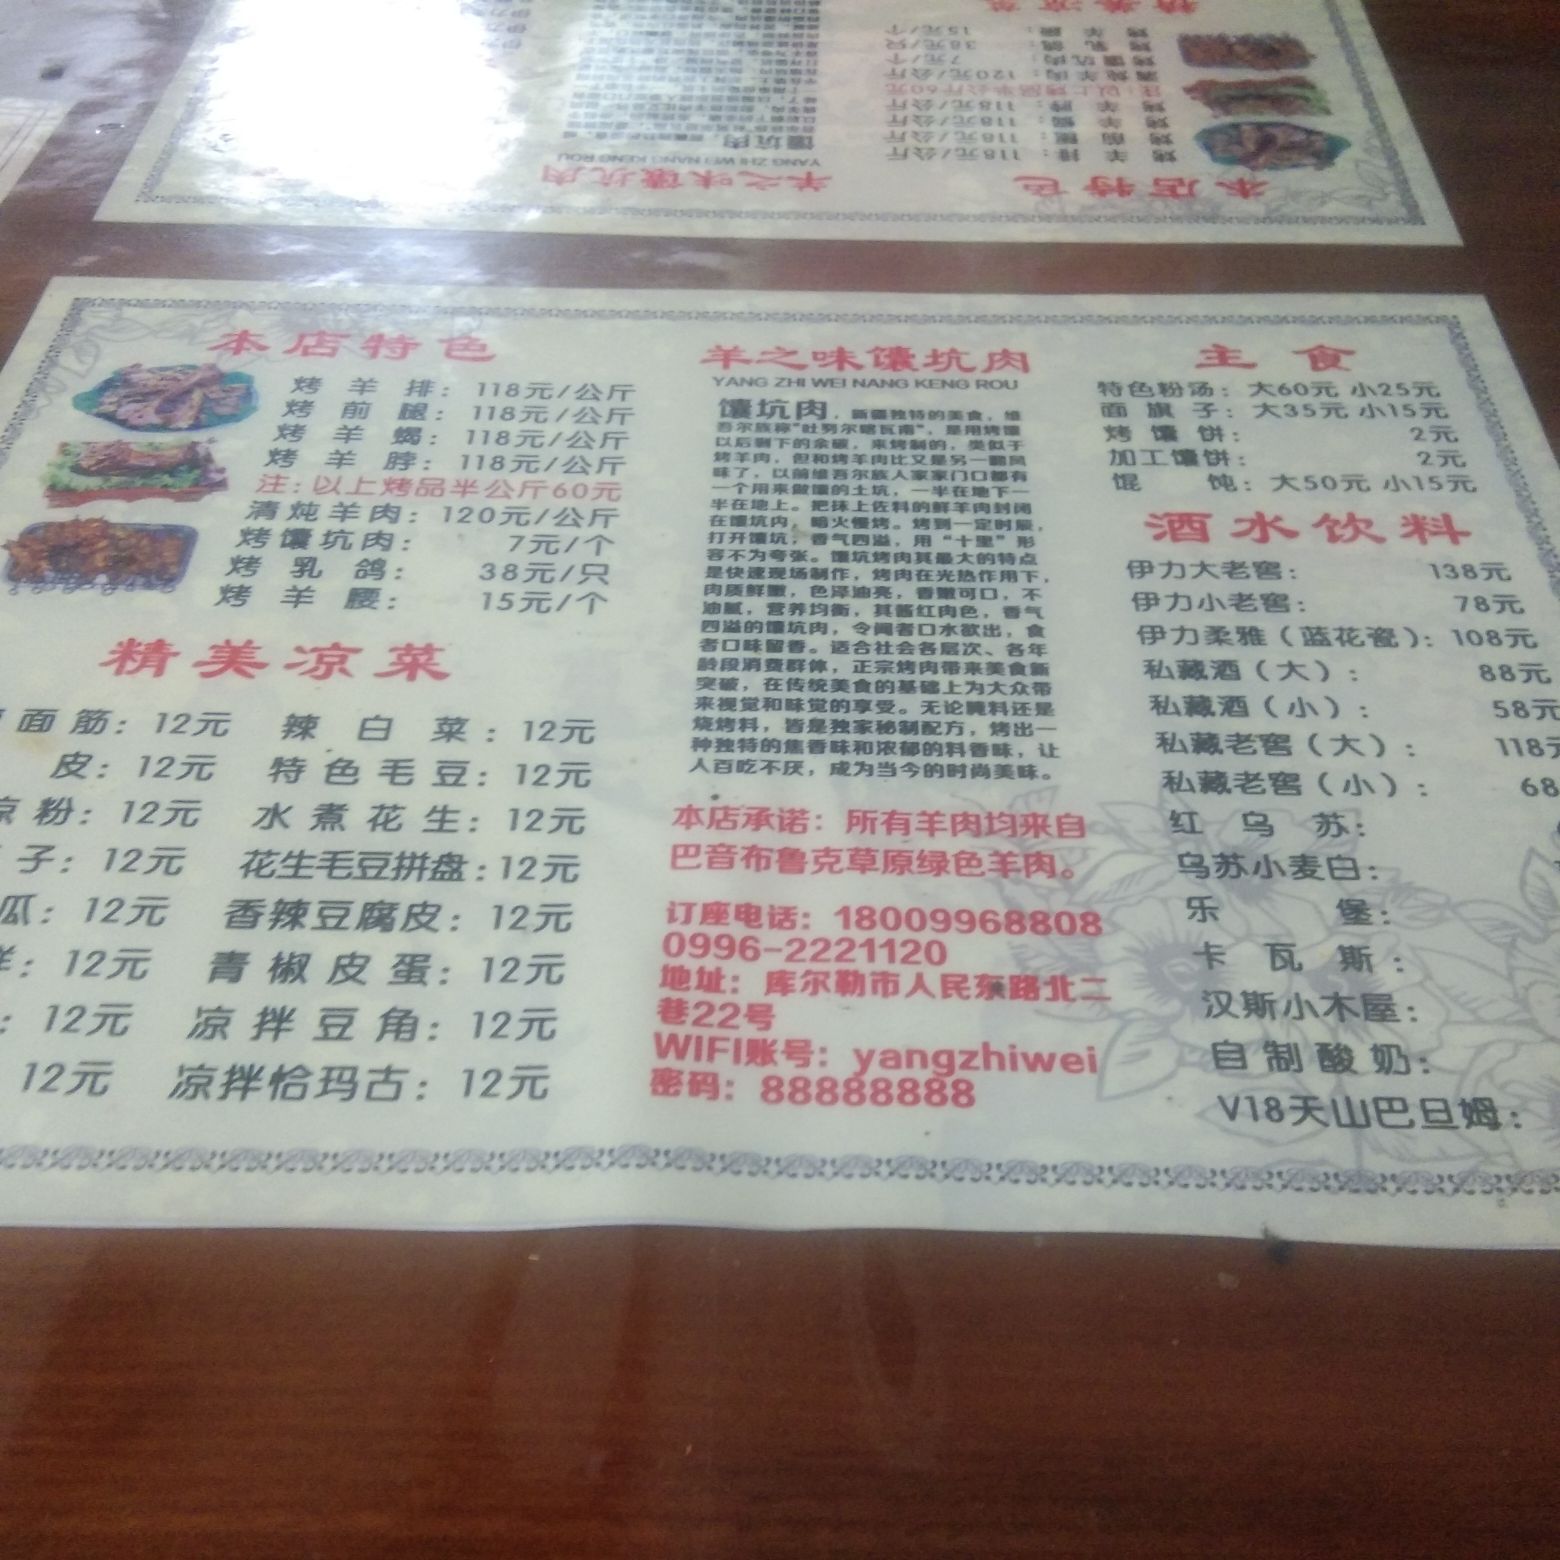 本店特色
烤羊排：118元/公斤
烤前腿：118元/公斤
烤羊蝎：118元/公斤
烤羊脖：118元/公斤
注：以上烤品半公斤60元
清炖羊肉：120元/公斤
烤馕坑肉：7元/个
烤乳鸽：38元/只
烤羊腰：15元/个
精美凉菜
面筋：12元 辣白菜：12元
皮：12元 特色毛豆：12元
凉粉：12元 水煮花生：12元
子：12元 花生毛豆拼盘：12元
瓜：12元 香辣豆腐皮：12元
12元 青椒皮蛋：12元
：12元 凉拌豆角：12元
12元 凉拌恰玛古：12元
羊之味馕坑肉
YANG ZHI WEI NANG KENG ROU
馕坑肉，新疆独特的美食，维
吾尔族称“吐努尔喀瓦甫”，是用烤馕
以后剩下的余碳，来烤制的，类似于
烤羊肉，但和烤羊肉比又是另一翻风
味了，以前维吾尔族人家家门口都有
一个用来做馕的土坑，一半在地下一
半在地上。把抹上佐料的鲜羊肉封闭
在馕坑内，暗火慢烤。烤到一定时辰，
打开馕坑，香气四溢，用“十里”形
容不为夸张。馕坑烤肉其最大的特点
是快速现场制作，烤肉在光热作用下，
肉质鲜嫩，色泽油亮，香嫩可口，不
油腻，营养均衡，其酱红肉色，香气
四溢的馕坑肉，令闻者口水欲出，食
者口味留香。适合社会各层次、各年
龄段消费群体，正宗烤肉带来美食新
突破，在传统美食的基础上为大众带
来视觉和味觉的享受。无论腌料还是
烧烤料，皆是独家秘制配方，烤出一
种独特的焦香味和浓郁的料香味，让
人百吃不厌，成为当今的时尚美味。
本店承诺：所有羊肉均来自
巴音布鲁克草原绿色羊肉。
订座电话：18009968808
0996-2221120
地址：库尔勒市人民东路北二
巷22号
WIFI账号：yangzhiwei
密码：88888888
主食
特色粉汤：大60元 小25元
面旗子：大35元 小15元
烤馕饼：2元
加工馕饼：2元
馄饨：大50元 小15元
酒水饮料
伊力大老窖：138元
伊力小老窖：78元
伊力柔雅（蓝花瓷）：108元
私藏酒（大）：88元
私藏酒（小）：58元
私藏老窖（大）：118元
私藏老窖（小）：68
红乌苏：
乌苏小麦白：
乐堡：
卡瓦斯：
汉斯小木屋：
自制酸奶：
V18天山巴旦姆：